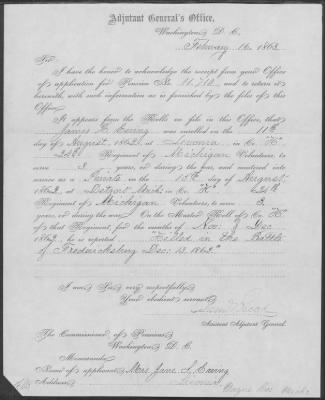 Adjutant General's Office,
Washington D. C.
February 16, 1863.
Sir:
I have the honor to acknowledge the receipt from your Office
of application for Pension No. and to return it
herewith, with such information as is furnished by the files of this
Office.
It appears from the Rolls on file in this Office, that
James E. Ewing was enrolled on the 11th
day of August, 1862, at Livonia in Co. "K"
24th Regiment of Michigan Volunteers, to
serve 3 years, or during the war, and mustered into
service as a Private on the 13th day of August,
1862, at Detroit Mich. in Co. "K" 24th
Regiment of Michigan Volunteers, to serve 3
years, or during the war. On the Muster Roll of Co. "K"
of that Regiment, for the months of Nov. & Dec
1862, he is reported "Killed in the Battle
of Fredericksburg Dec. 13. 1862"
I am Sir, very respectfully
Your obedient servant,
Assistant Adjutant General.
The Commissioner of Pensions
Washington D. C.
Memoranda:
Name of applicant Mrs Jane Ewing
Address, Livonia
Wayne Mich